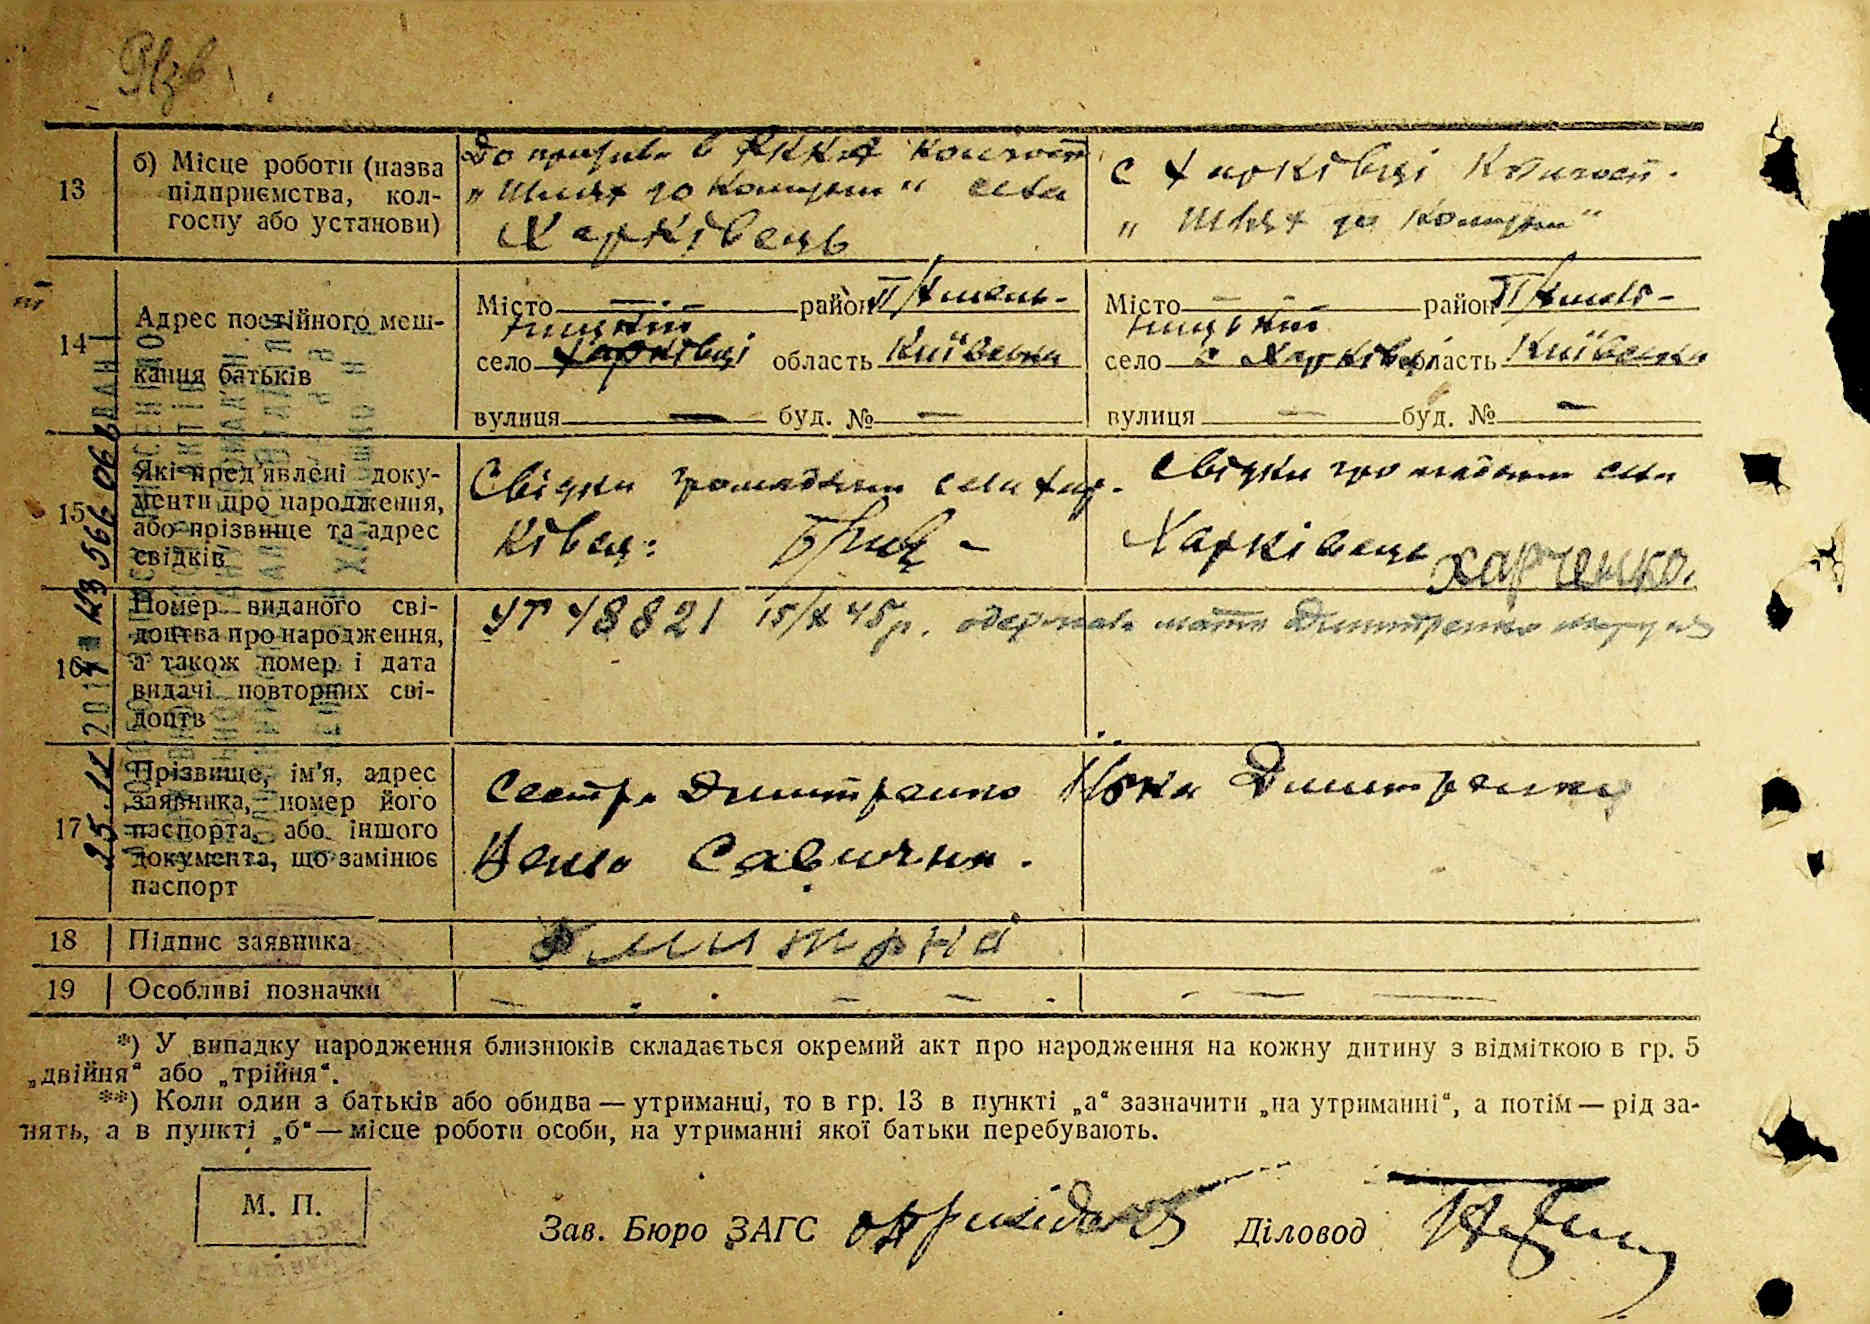 13
б) Місце роботи (назва
підприємства, кол-
госпу або установи)
До призива в РККА колгосп
„Шлях до Комуни“ села
Харківець
с Харківці Колгосп.
„Шлях до Комуни“
14
Адрес постійного меш-
кання батьків
Місто — район П/Хмель-
ницький
село Харківці область Київська
вулиця — буд. № —
Місто — район П/Хмель-
ницький
село с Харківці область Київська
вулиця — буд. № —
15
Які пред'явлені доку-
менти про народження,
або прізвище та адрес
свідків
Свідки громадяни села Хар-
ківець:
Свідки громадяни села
Харківець Харченко.
16
Номер виданого сві-
доцтва про народження,
а також номер і дата
видачі повторних сві-
доцтв
УТ 48821 15/X 45р. одержала мати Дмитренко
17
Прізвище, ім'я, адрес
заявника, номер його
паспорта, або іншого
документа, що замінює
паспорт
Сестра Дмитренко
Савична.
Дмитренко
18
Підпис заявника
19
Особливі позначки
*) У випадку народження близнюків складається окремий акт про народження на кожну дитину з відміткою в гр. 5
„двійня“ або „трійня“.
**) Коли один з батьків або обидва — утриманці, то в гр. 13 в пункті „а“ зазначити „на утриманні“, а потім — рід за-
нять, а в пункті „б“ — місце роботи особи, на утриманні якої батьки перебувають.
М. П.
Зав. Бюро ЗАГС
Діловод